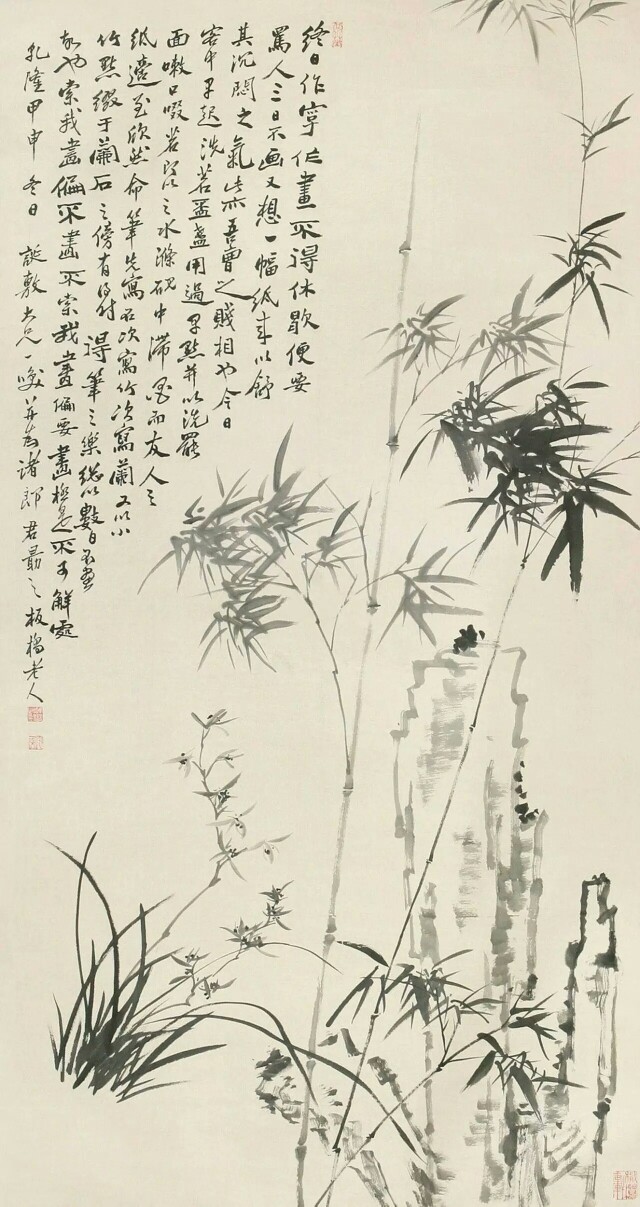 終日作字作畫不得休歇便要
罵人三日不画又想一幅紙来以舒
其沉悶之氣此亦吾曹之賤相也今日
客中早起洗茗盃盞用過早點并以洗罷
面嗽口啜茗之水滌硯中滞墨而友人之
紙適至欣然命筆先寫石次寫竹次寫蘭又以小
竹點綴于蘭石之傍有得時得筆之樂總以數日不畫
故也索我畫偏不畫不索我畫偏要畫極是不可解處
乾隆甲申冬日 誕敷大兄一咲并为諸郎君勗之板橋老人